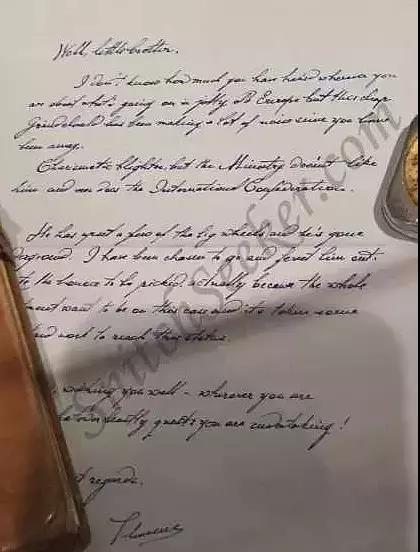 Well, little brother.
I don't know how much you have heard wherever you
are about what's going on in jolly old Europe but this chap
Grindelwald has been making a lot of noise since you have
been away.
Charismatic blighter, but the Ministry doesn't like
him and nor does the International Confederation.
He has upset a few of the big wheels and he's gone
I have been chosen to go and ferret him out.
to be picked, actually because the whole
want to be on this case and it's taken some
hard work to reach this status.
wishing you well - wherever you are
beastly quests you are undertaking!
t regards,
Theseus
SnitchSeeker.com